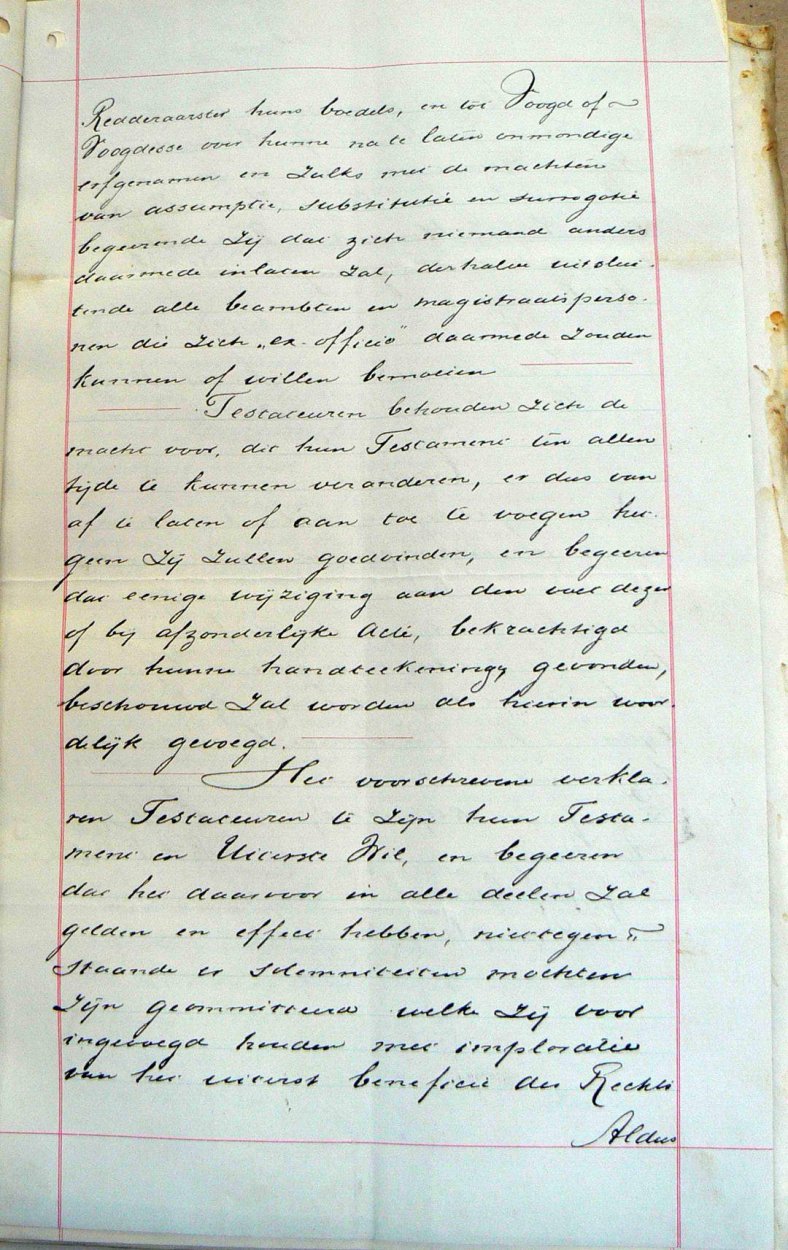 Redderaarster huns boedels, en tot Voogd of
Voogdesse over hunne na te laten onmondige
erfgenamen en zulks met de machten
van assumptie, substitutie en surrogatie
begeerende zij dat zich niemand anders
daarmede inlaten zal, derhalve uitslui-
tende alle beambten en magistraatsperso-
nen die zich "ex-officio" daarmede zouden
kunnen of willen bemoeien
Testateuren behouden zich de
macht voor, dit hun Testament ten allen
tijde te kunnen veranderen, er dus van
af te laten of aan toe te voegen het-
geen zij zullen goedvinden, en begeeren
dat eenige wijziging aan den voet dezer
of bij afzonderlijke Acte, bekrachtigd
door hunne handteekening, gevonden,
beschouwd zal worden als hierin woor-
delijk gevoegd.
Het voorschrevene verkla-
ren Testateuren te zijn hun Testa-
ment en Uiterste Wil, en begeeren
dat het daarvoor in alle deelen zal
gelden en effect hebben, niettegen-
staande er solemniteiten mochten
zijn geommitteerd welke zij voor
ingevoegd houden met imploratie
van het uiterst beneficie des Rechts
Aldus